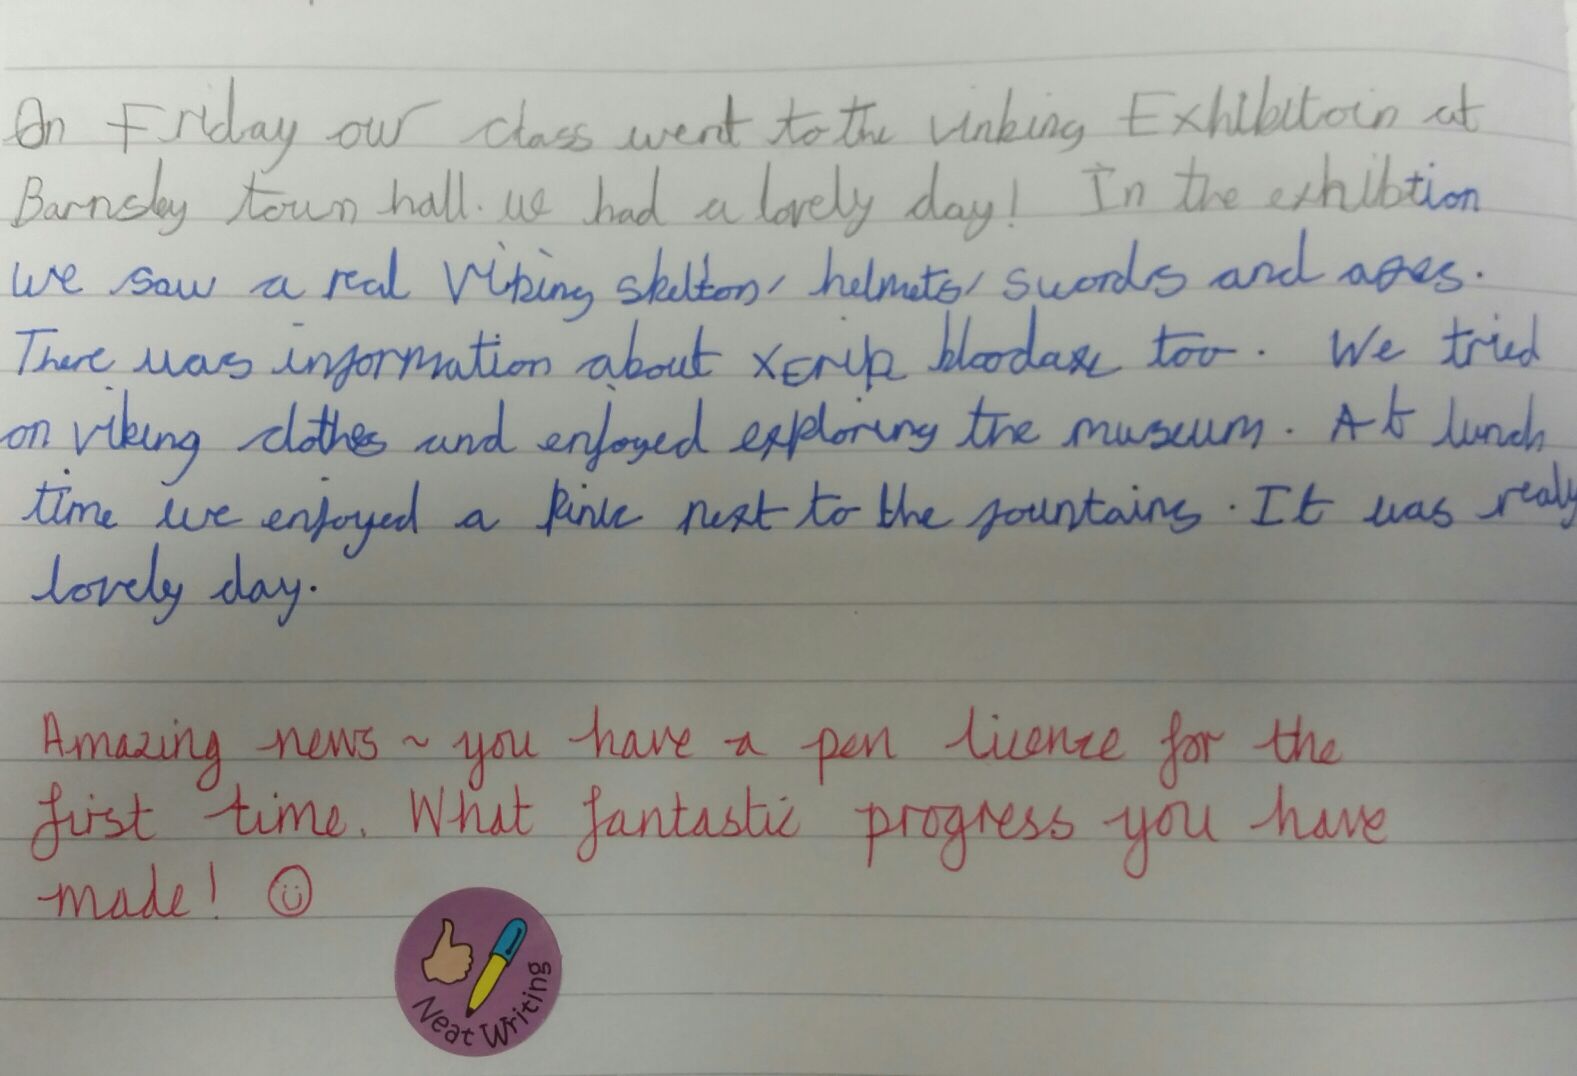 On Friday our class went to the vinking Exhibitoin at
Barnsley town hall. we had a lovely day! In the exhibtion
we saw a real Viking skelton, helmets, swords and axes.
There was information about xErik bloodaxe too. We tried
on viking clothes and enjoyed exploring the museum. At lunch
time we enjoyed a next to the fountains. It was realy
lovely day.
Amazing news ~ you have a pen license for the
first time. What fantastic progress you have
made! ☺
Neat Writing